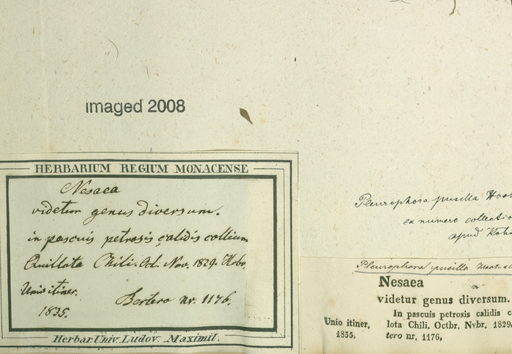 imaged 2008
HERBARIUM REGIUM MONACENSE
Nesaea
videtur genus diversum.
in pascuis petrosis calidis collium
Quillota Chili. Oct. Nov. 1829.
Unio itiner.
1835.
Bertero nr. 1176.
Herbar. Univ. Ludov. Maximil.
Pleurophora pusilla Hook
ex numero collection
apud
Pleurophora pusilla Hook.
Nesaea
videtur genus diversum.
In pascuis petrosis calidis c
Unio itiner, lota Chili, Octbr, Nvbr, 1829
1835. tero nr. 1176,